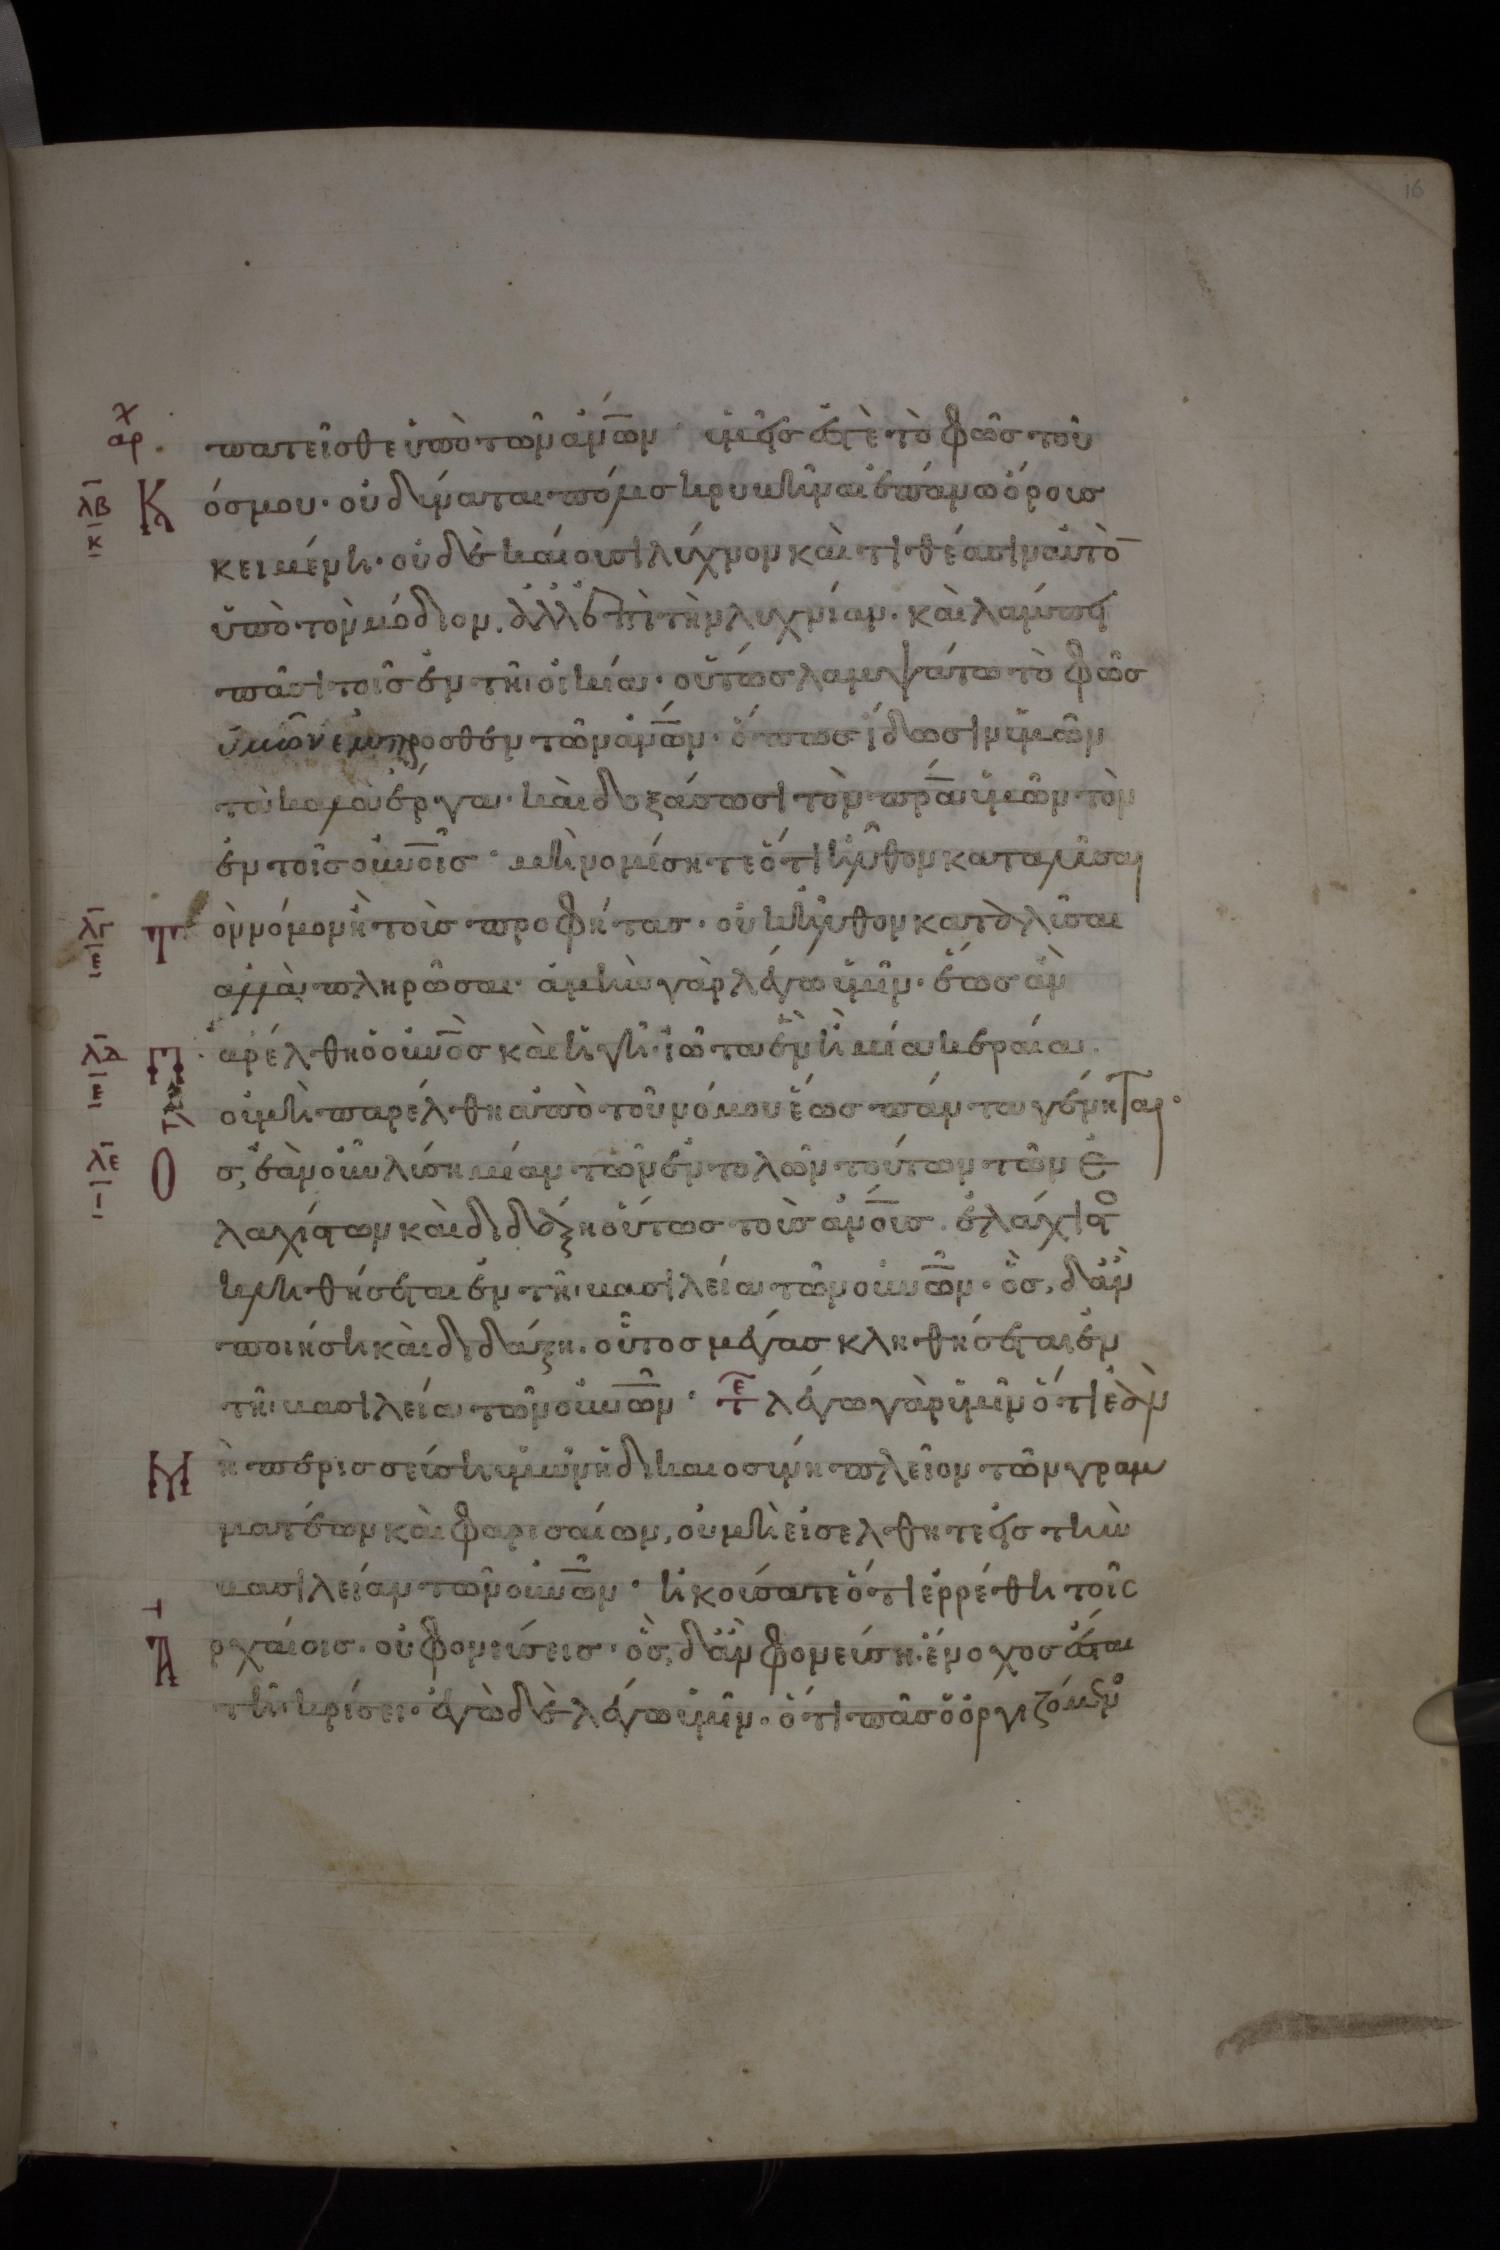 16
χ
αρ
πατεῖσθε ὑπὸ τῶν ἀν̅ω̅ν· ὑμεῖς ἐστὲ τὸ φῶς τοῦ
λβ κ Κόσμου· οὐ δύναται πόλις κρυβῆναι ἐπάνω ὄρους
κειμένη· οὐδὲ καίουσι λύχνον καὶ τιθέασιν αὐτὸ̅
ὑπὸ τὸν μόδιον. ἀλλ' ἐπὶ τὴν λυχνίαν. καὶ λάμπει
πᾶσι τοῖς ἐν τῆ οἰκία· οὕτως λαμψάτω τὸ φῶς
ὑμῶν ἔμπροσθεν τῶν ἀν̅ω̅ν· ὅπως ἴδωσιν ὑμῶν
τὰ καλὰ ἔργα· καὶ δοξάσωσι τὸν πρ̅α̅ ὑμῶν τὸν
ἐν τοῖς οὐν̅ο̅ῖς· μὴ νομίσητε ὅτι ἦλθον καταλῦσαι
λγ ε Τὸν νόμον ἢ τοὺς προφήτας· οὐκ ἦλθον καταλῦσαι
ἀλλὰ πληρῶσαι· ἀμὴν γὰρ λέγω ὑμῖν· ἕως ἂν
λδ ε Παρέλθη ὁ οὐν̅ο̅ς καὶ ἡ γῆ· ἰῶτα ἓν ἢ μία κεραία.
οὐ μὴ παρέλθη ἀπὸ τοῦ νόμου ἕως πάντα γένηται·
λε ι Ὃς, ἐὰν οὖν λύση μίαν τῶν ἐντολῶν τούτων τῶν ἐ
λαχίστων καὶ διδάξη οὕτως τοὺς ἀν̅ο̅υς. ἐλάχιστο
κληθήσεται ἐν τῆ βασιλεία τῶν οὐν̅ω̅ν· ὃς, δ' ἂν
ποιήση καὶ διδάξη. οὗτος μέγας κληθήσεται ἐν
τῆ βασιλεία τῶν οὐν̅ω̅ν· τε λέγω γὰρ ὑμῖν ὅτι ἐὰν
Μὴ περισσεύση ὑμῶν ἡ δικαιοσύνη πλεῖον τῶν γραμ
ματέων καὶ φαρισαίων, οὐ μὴ εἰσέλθητε εἰς τὴν
βασιλείαν τῶν οὐν̅ω̅ν· ἠκούσατε ὅτι ἐρρέθη τοῖς
Ἀρχαίοις· οὐ φονεύσεις· ὃς, δ' ἂν φονεύση. ἔνοχος ἔσται
τῆ κρίσει· ἐγὼ δὲ λέγω ὑμῖν· ὅτι πᾶς ὁ ὀργιζόμεν